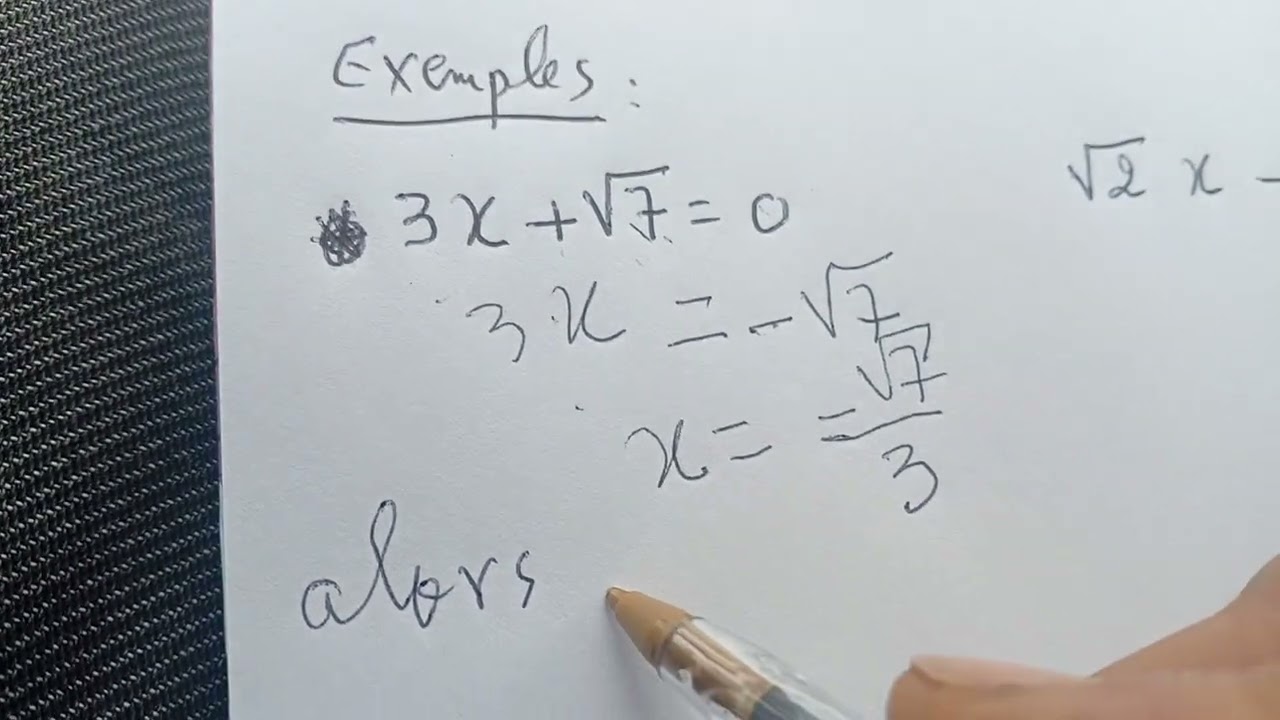 Exemples :
3x + √7 = 0
√2 x -
3x = - √7
x = -√7/3
alors